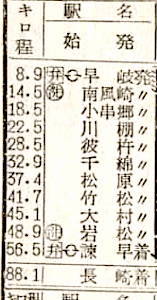 キロ程 駅名
始発
8.9 弁 早岐発
14.5 南風崎 〃
18.5 小串郷 〃
22.5 川棚 〃
28.5 彼杵 〃
32.9 千綿 〃
37.4 松原 〃
41.7 竹松 〃
45.1 大村 〃
48.9 岩松 〃
56.5 弁 諫早着
88.1 長崎着
駅名